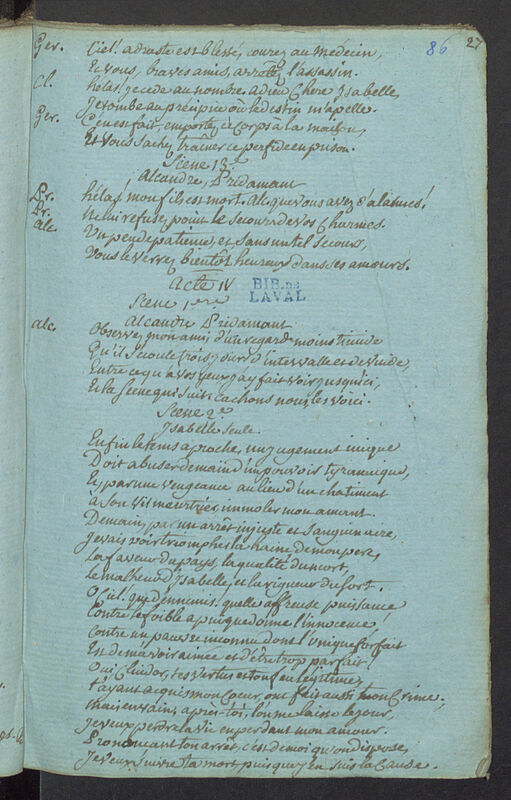 86 27
Ger. Ciel! adraste est blessé, courez au médecin,
Et vous, braves amis, arrêtez l'assassin.
Cl. hélas, je cede au nombre. adieu Chere Isabelle,
Je tombe au précipice où le destin m'apelle.
Ger. C'en est fait, emportez ce Corps à la maison,
Et vous Sachez traîner ce perfide en prison.
Scene 13e
Alcandre, Pridamant
Pr. hélas! mon fils est mort. Alc. que vous avez d'alarmes!
Pr. Ne lui refusez point le Secours de vos Charmes.
alc. Un peu de patience, et Sans un tel Secours
Vous le verrez bientôt heureux dans ses amours.
Acte IV
BIB. DE
LAVAL
Scene 1ere
Alcandre Pridamant
alc. Observez mon ami, d'un regard moins timide
Qu'il S'ecoule trois jours d'intervalle et de vuide,
Entre ce qu'à vos yeux j'ay fait voir jusqu'ici,
Et la Scene qui Suit: cachons nous, les voici.
Scene 2e
Isabelle Seule.
Enfin le tems aproche, un jugement inique
Doit abuser demain d'un pouvoir tyrannique,
Et par une vengeance au lieu d'un chatiment
à Son vil meurtrier immoler mon amant.
Demain, par un arrêt injuste et Sanguinaire,
Je vais voir triompher la haine de mon pere,
La faveur du pays, la qualité du mort,
Le malheur d'Isabelle, et la rigueur du Sort.
O Ciel! que d'ennemis! quelle affreuse puissance
Contre le foible apui que donne l'innocence!
Contre un pauvre inconnu dont l'unique forfait
Est de m'avoir aimée et d'être trop parfait!
Oui, Clindor, tes vertus et ton feu légitime,
t'ayant acquis mon Coeur, ont fait aussi ton Crime;
mais en vain, apres toi, l'on me laisse le jour,
Je veux perdre la vie en perdant mon amour.
Prononçant ton arrêt, c'est de moi qu'on dispose,
Je veux Suivre ta mort puisque j'en Suis la Cause.